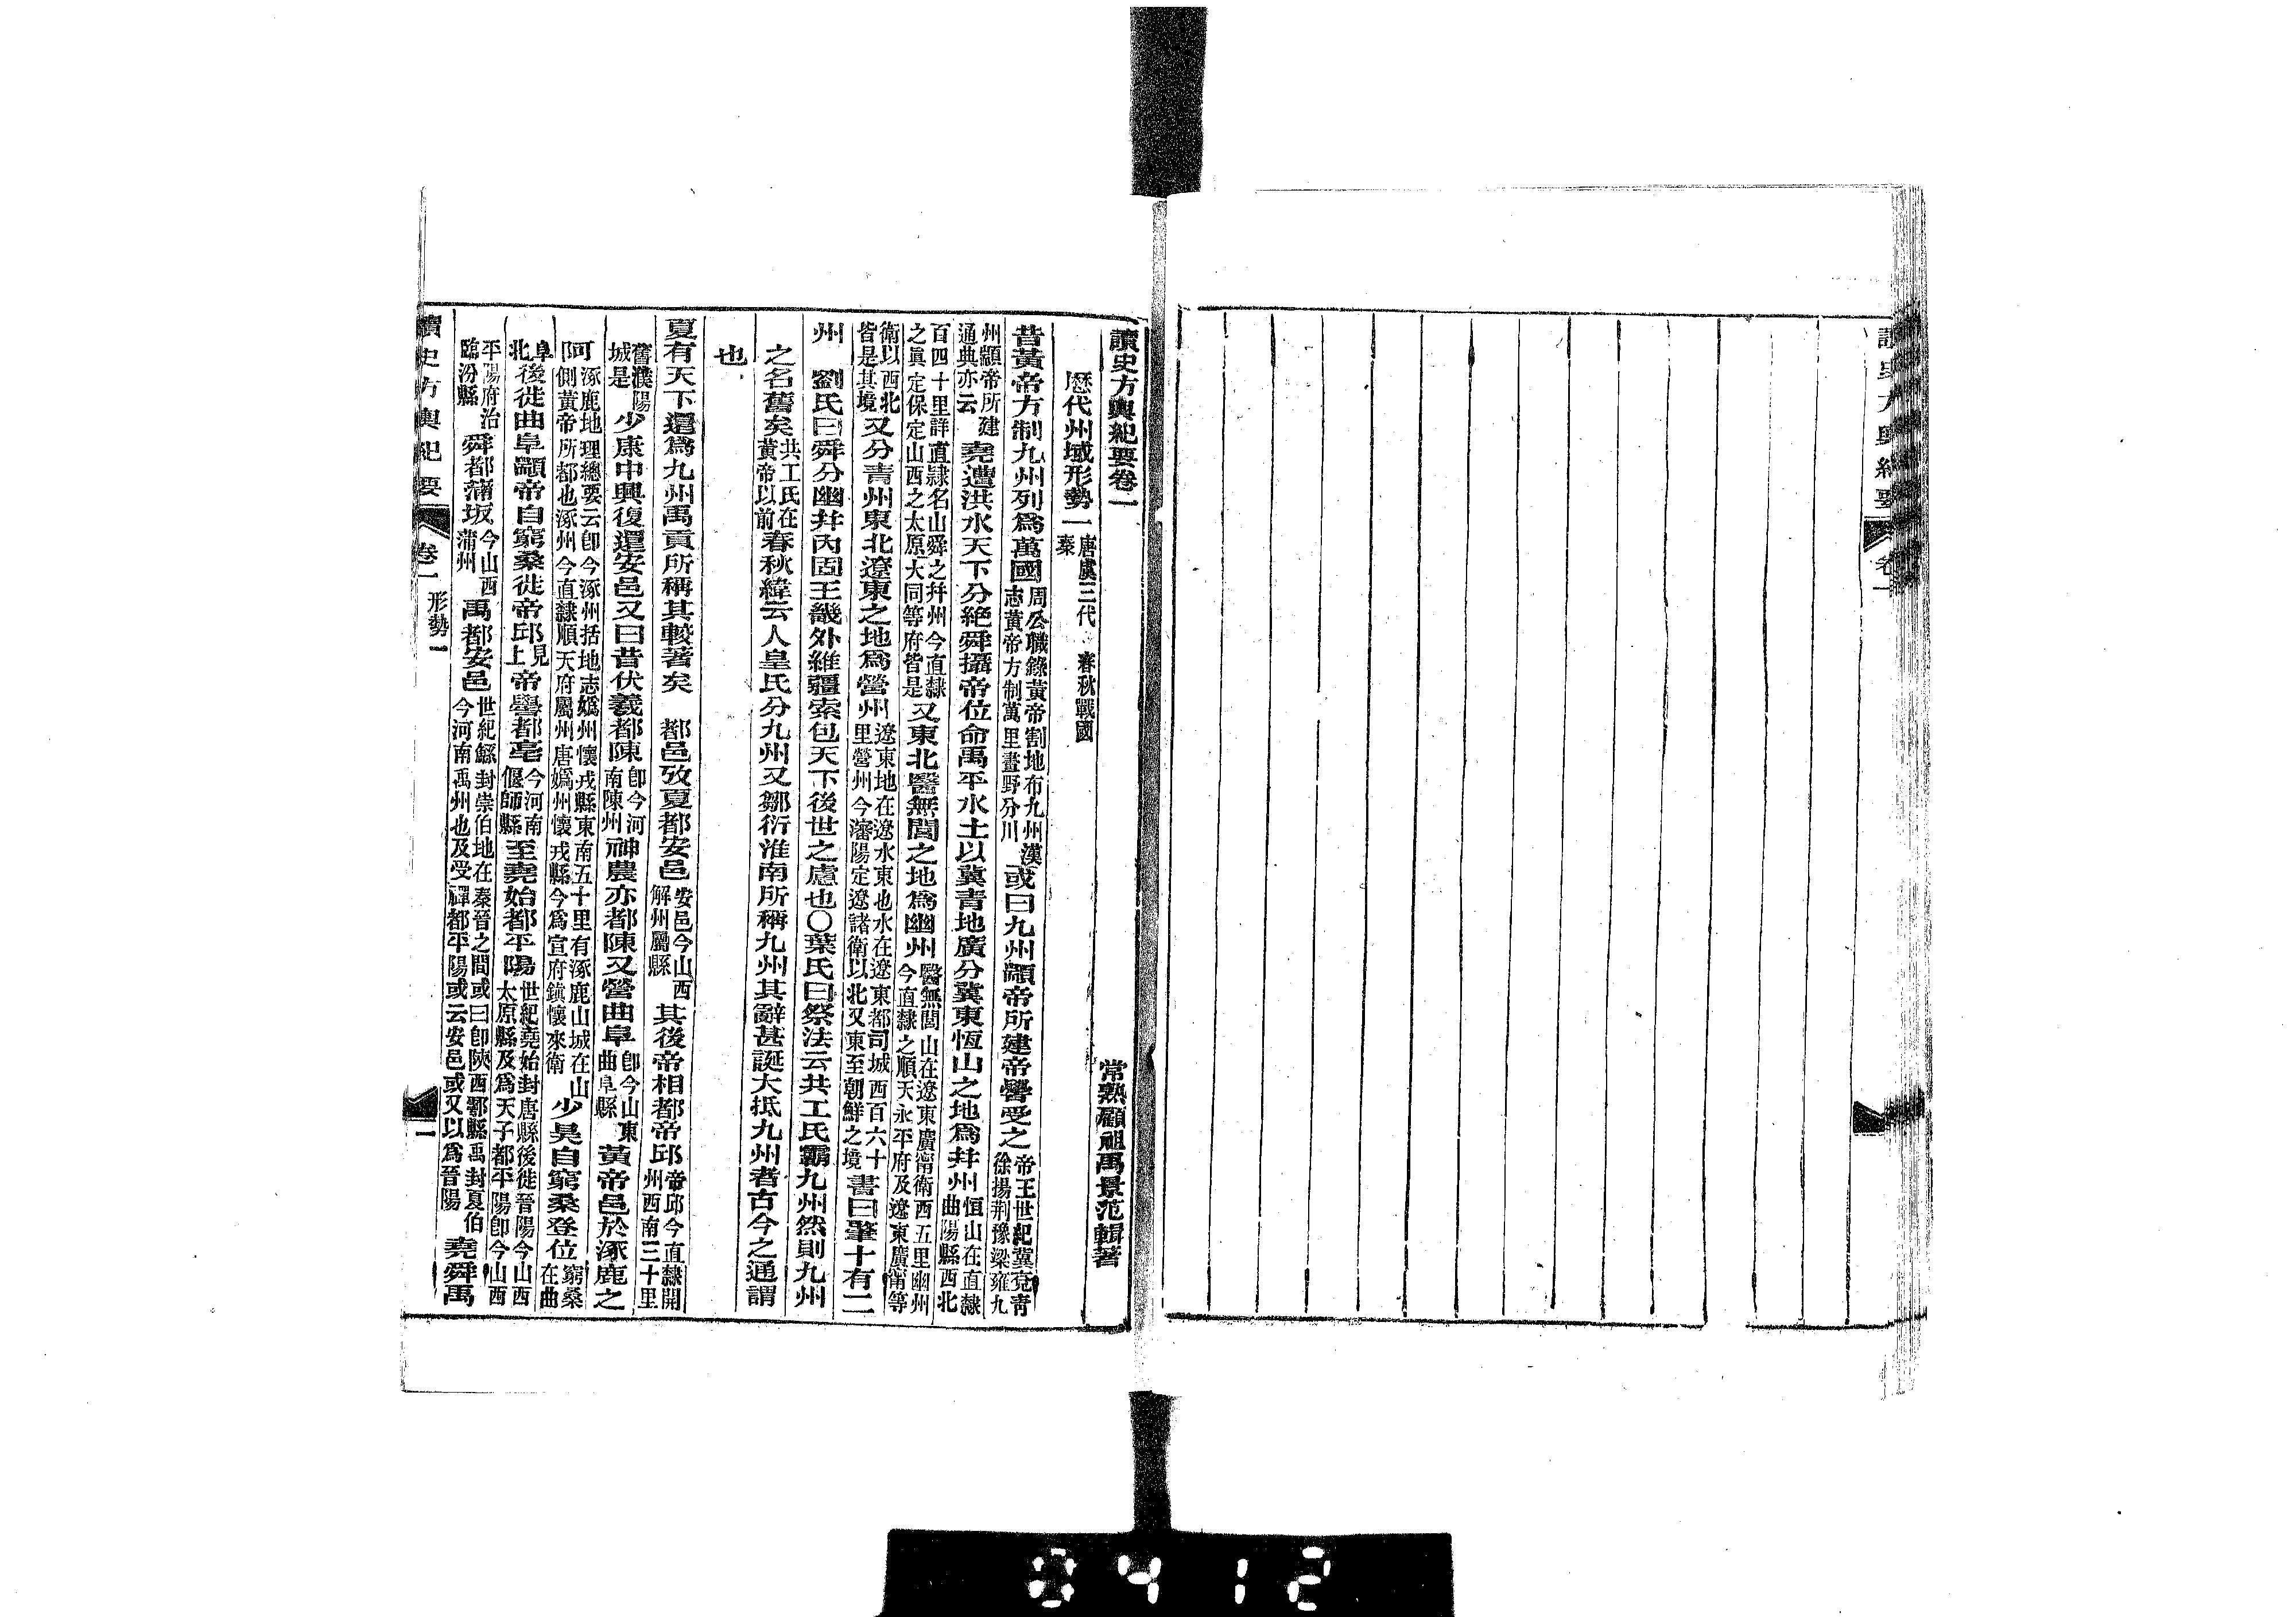 讀史方輿紀要 卷一
讀史方輿紀要卷一
常熟顧祖禹景范輯著
歷代州域形勢一 唐虞三代 春秋戰國 秦
昔黃帝方制九州列爲萬國周公職錄黃帝割地布九州漢志黃帝方制萬里畫野分川或曰九州顓帝所建帝嚳受之帝王世紀冀兗青徐揚荆豫梁雍九
州顓帝所建通典亦云堯遭洪水天下分絶舜攝帝位命禹平水土以冀青地廣分冀東恆山之地爲幷州恒山在直隸曲陽縣西北
百四十里詳直隸名山舜之幷州今直隸之眞定保定山西之太原大同等府皆是又東北醫無閭之地爲幽州醫無閭山在遼東廣甯衛西五里幽州今直隸之順天永平府及遼東廣甯等
衛以西北皆是其境又分青州東北遼東之地爲營州遼東地在遼水東也水在遼東都司城西百六十里營州今瀋陽定遼諸衛以北又東至朝鮮之境書曰肇十有二
州 劉氏曰舜分幽幷內固王畿外維疆索包天下後世之慮也〇葉氏曰祭法云共工氏霸九州然則九州
之名舊矣共工氏在黃帝以前春秋緯云人皇氏分九州又鄒衍淮南所稱九州其辭甚誕大抵九州者古今之通謂
也
夏有天下還爲九州禹貢所稱其較著矣 都邑攷夏都安邑安邑今山西解州屬縣其後帝相都帝邱帝邱今直隸開州西南三十里
舊濮陽城是少康中興復還安邑又曰昔伏羲都陳卽今河南陳州神農亦都陳又營曲阜卽今山東曲阜縣黃帝邑於涿鹿之
阿涿鹿地理總要云卽今涿州括地志嬀州懷戎縣東南五十里有涿鹿山城在山側黃帝所都也涿州今直隸順天府屬州唐嬀州懷戎縣今爲宣府鎭懷來衛少昊自窮桑登位窮桑在曲
阜北後徙曲阜顓帝自窮桑徙帝邱見上帝嚳都亳今河南偃師縣至堯始都平陽世紀堯始封唐縣後徙晉陽今山西太原縣及爲天子都平陽卽今山西
平陽府治臨汾縣舜都蒲坂今山西蒲州禹都安邑世紀鯀封崇伯地在秦晉之間或曰卽陝西鄠縣禹封夏伯今河南禹州也及受禪都平陽或云安邑或又以爲晉陽堯舜禹
讀史方輿紀要 卷一 形勢一 一
0412